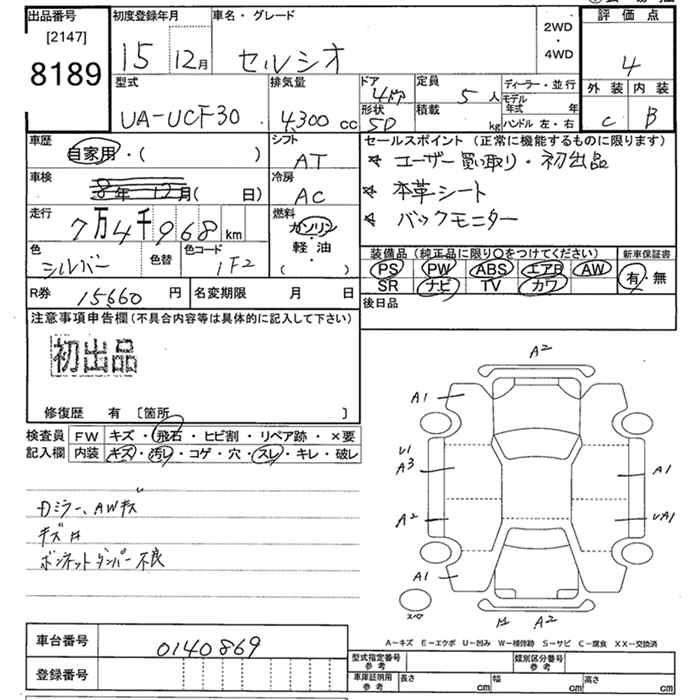 出品番号 初度登録年月 車名・グレード 2WD・4WD 評価点
[2147]
8189 15 12月 セルシオ 4
型式 排気量 ドア 4 定員 5人 ディーラー・並行 外装 内装
UA-UCF30 4,300 cc 形状 5D 積載 kg モデル年式 年 C B
ハンドル 左・右
車歴 シフト セールスポイント (正常に機能するものに限ります)
自家用・( ) AT ★ ユーザー買い取り・初出品
車検 冷房 ★ 本革シート
8年 12月( 日) AC ★ バックモニター
走行 燃料
7万4千968 km ガソリン
色 色替 色コード 軽油 装備品 (純正品に限り○をつけてください) 新車保証書
シルバー 1F2 ( ・ ) PS PW ABS エアB AW 有・無
SR ナビ TV カワ
R券 15660 円 名変期限 月 日 後日品
注意事項申告欄 (不具合内容等は具体的に記入して下さい)
初出品
修復歴 有 〔箇所 〕
検査員 FW キズ・飛石・ヒビ割・リペア跡・×要
記入欄 内装 キズ・汚レ・コゲ・穴・スレ・キレ・破レ
Dミラー、AWキズ
キズ
ボンネットダンパー不良
A2
A1
U1
A3 A1
A2 UA1
A1
スペア
A2
A−キズ E−エクボ U−凹み W−補修跡 S−サビ C−腐食 XX−交換済
車台番号 0140869 型式指定番号 参考 類別区分番号 参考
登録番号 車庫証明用 参考 長さ cm 幅 cm 高さ cm